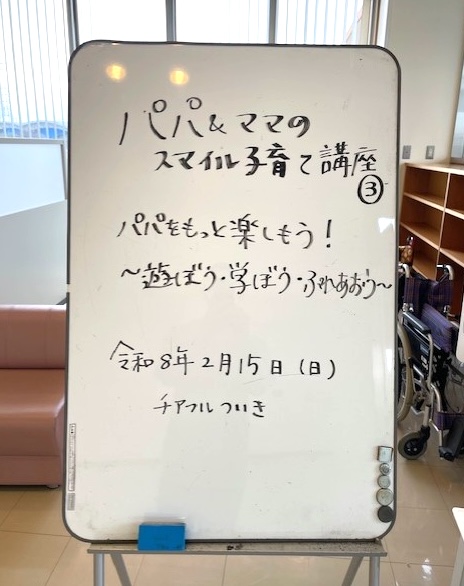 パパ&ママの
スマイル子育て講座
③
パパをもっと楽しもう!
～遊ぼう・学ぼう・ふれあおう～
令和8年2月15日(日)
チアフルついき